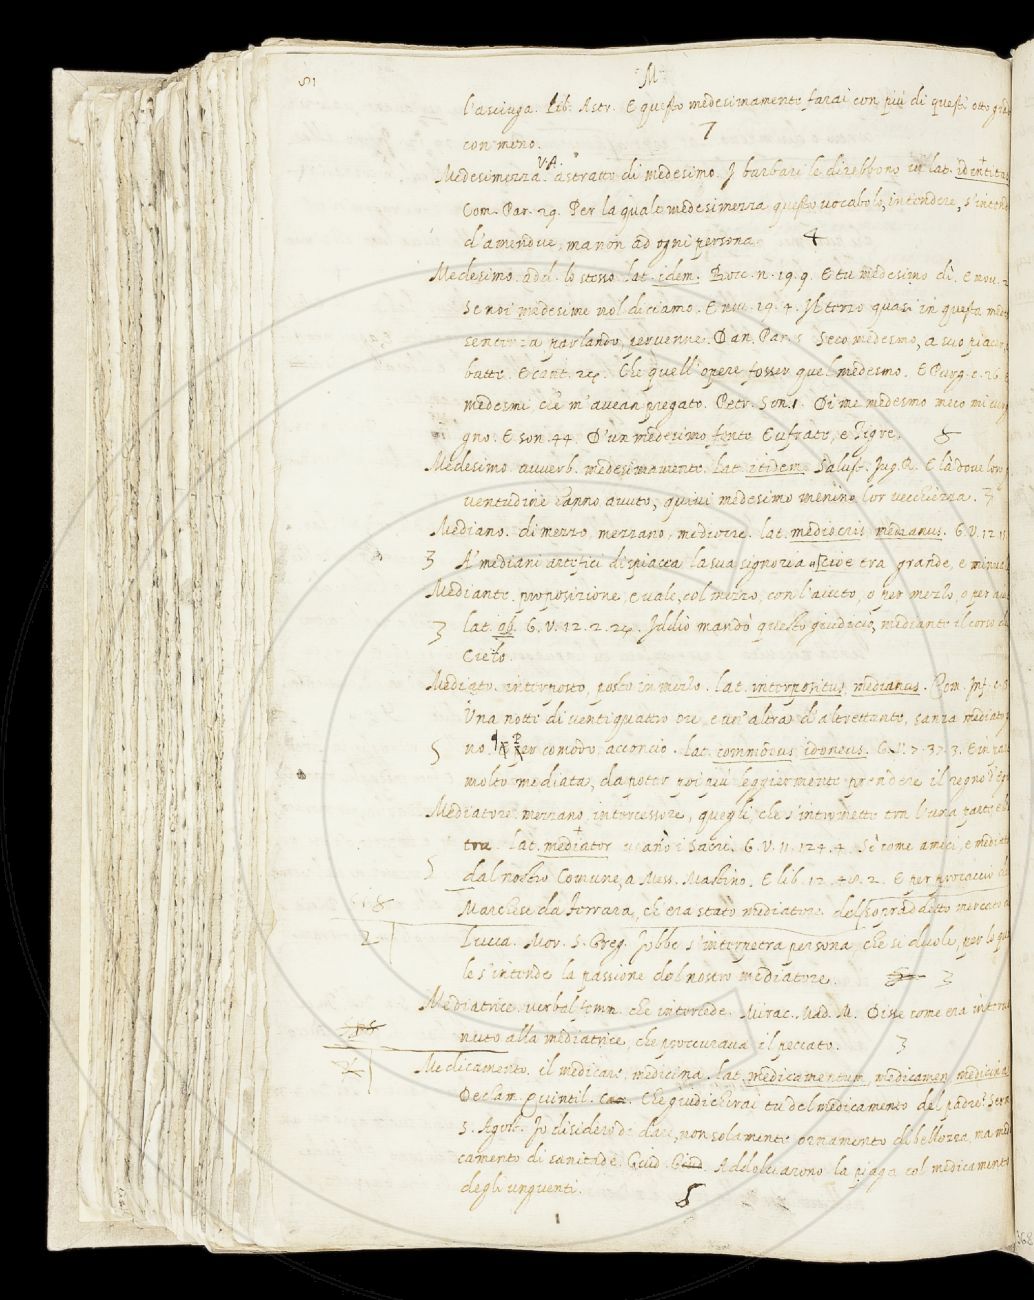 M
l'asciuga. Lib. Astr. E questo medesimamente farai con più di questi otto
con meno. 7
V.A.
Medesimezza. astratto di medesimo. I barbari le direbbono in lat. identitas
Com. Par. 29. Per la quale medesimezza questo vocabolo, intendere,
d'amendue, ma non ad ogni persona. 4
Medesimo. add. lo stesso. lat. idem. Bocc. n. 19. 9. E tu medesimo di. e nov.
Se noi medesime nol diciamo. E nov. 19. 4. Il terzo quasi in questa
sentenza parlando, pervenne. Dan. Par. 5 Seco medesmo, a suo
batte. E cant. 24. Che quell'opere fosser quel medesmo. E Purg. c. 26.
medesmi, che m'avean pregato. Petr. Son. 1. Di me medesmo meco mi
gno. E son. 44. D'un medesimo fonte Eufrate, e Tigre. 8
Medesimo. avverb. medesimamente. lat. itidem. Salust. Jug. R. E là dove
ventudine hanno avuto, quivi medesimo menino lor vecchiezza. 3
Mediano. di mezzo, mezzano, mediocre. lat. mediocris, medianus. G. V. 12
3 A' mediani artefici dispiacea la sua signoria cioè tra grande, e
Mediante. preposizione, e vale, col mezzo, con l'aiuto, o per mezzo, o per
3 lat. ob. G. V. 12. 2. 24. Iddio mandò questo giudicio, mediante il corso
Cielo.
Mediato. interposto, posto in mezzo. lat. interpositus, medianus. Com. Inf.
Una notte di ventiquattro ore, e un'altra d'altrettante, sanza
5 no. Per comodo, acconcio. lat. commodus, idoneus. G. V. 7. 37. 3. E in
molto mediata, da poter poi più leggiermente prendere il regno
Mediatore. mezzano, intercessore, quegli, che s'intromette tra l'una parte,
tra. lat. mediator i Sacri. G. V. 11. 124. 4. Sì come amici, e
5 dal nostro Comune, a Mess. Mastino. E lib. 12. 48. 2. E per procaccio
Marchese da Ferrara, ch'era stato mediatore del sopraddetto mercato
2 Lucca. Mor. S. Greg. Jobbe s'interpetra persona, che si duole, per lo
le s'intende la passione del nostro mediatore. 3
Mediatrice. verbal. femm. che intercede. Mirac. Mad. M. Disse come era
nuto alla mediatrice, che proccurava il peccato. 3
Medicamento. il medicare, medicina. lat. medicamentum, medicamen, medicina
Declam. Quintil. Che giudicherai tu del medicamento del padre?
S. Agost. Io disidero di dare, non solamente ornamento di bellezza, ma
camento di sanitade. Guid. Addolciarono la piaga col medicamento
degli unguenti. 5